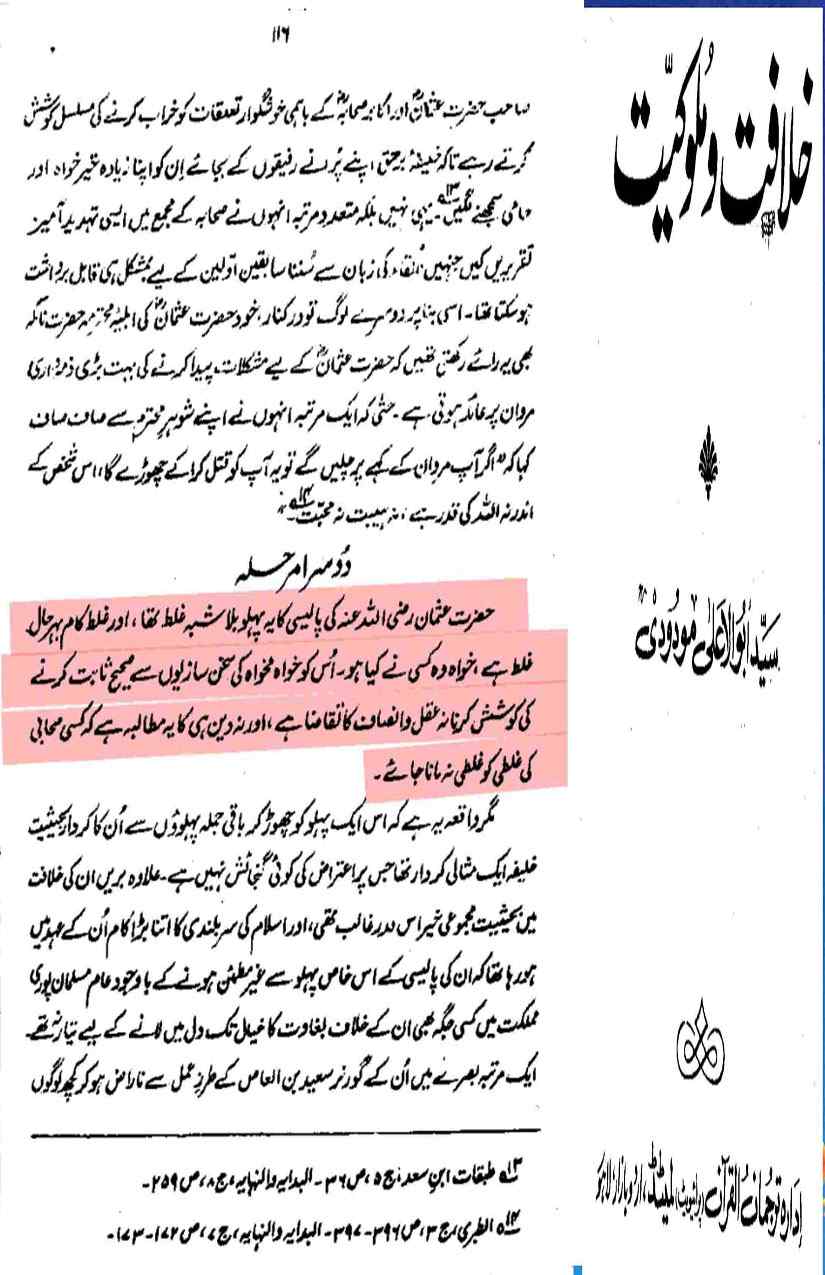 ۱۱۶
صاحب حضرت عثمانؓ اور اکابر صحابہؓ کے باہمی خوشگوار تعلقات کو خراب کرنے کی مسلسل کوشش
کرتے رہے تاکہ خلیفۂ برحق اپنے پرانے رفیقوں کے بجائے ان کو اپنا زیادہ خیر خواہ اور
حامی سمجھنے لگیں۱۳۔ یہی نہیں بلکہ متعدد مرتبہ انہوں نے صحابہ کے مجمع میں ایسی تہدید آمیز
تقریریں کیں جنہیں طلقاء کی زبان سے سُننا سابقین اوّلین کے لیے بمشکل ہی قابل برداشت
ہو سکتا تھا۔ اسی بنا پر دوسرے لوگ تو درکنار، خود حضرت عثمانؓ کی اہلیۂ محترمہ حضرت نائلہ
بھی یہ رائے رکھتی تھیں کہ حضرت عثمانؓ کے لیے مشکلات پیدا کرنے کی بہت بڑی ذمہ داری
مروان پر عائد ہوتی ہے۔ حتٰی کہ ایک مرتبہ انہوں نے اپنے شوہرِ محترم سے صاف صاف
کہا کہ "اگر آپ مروان کے کہے پر چلیں گے تو یہ آپ کو قتل کرا کے چھوڑے گا، اس شخص کے
اندر نہ اللہ کی قدر ہے، نہ ہیبت نہ محبّت۔"۱۴
دُوسرا مرحلہ
حضرت عثمان رضی اللہ عنہ کی پالیسی کا یہ پہلو بلا شبہ غلط تھا، اور غلط کام بہرحال
غلط ہے، خواہ وہ کسی نے کیا ہو۔ اُس کو خواہ مخواہ کی سخن سازیوں سے صحیح ثابت کرنے
کی کوشش کرنا نہ عقل و انصاف کا تقاضا ہے، اور نہ دین ہی کا یہ مطالبہ ہے کہ کسی صحابی
کی غلطی کو غلطی نہ مانا جائے۔
مگر واقعہ یہ ہے کہ اس ایک پہلو کو چھوڑ کر باقی جملہ پہلوؤں سے اُن کا کردار بحیثیت
خلیفہ ایک مثالی کردار تھا جس پر اعتراض کی کوئی گنجائش نہیں ہے۔ علاوہ بریں ان کی خلافت
میں بحیثیت مجموعی خیر اس قدر غالب تھی، اور اسلام کی سربلندی کا اتنا بڑا کام اُن کے عہد میں
ہو رہا تھا کہ ان کی پالیسی کے اس خاص پہلو سے غیر مطمئن ہونے کے باوجود عام مسلمان پوری
مملکت میں کسی جگہ بھی ان کے خلاف بغاوت کا خیال تک دل میں لانے کے لیے تیار نہ تھے۔
ایک مرتبہ بصرے میں اُن کے گورنر سعید بن العاص کے طرزِ عمل سے ناراض ہو کر کچھ لوگوں
۱۳ طبقات ابنِ سعد، ج ۵، ص ۳۶۔ البدایہ والنہایہ، ج ۸، ص ۲۵۹۔
۱۴ الطبری، ج ۳، ص ۳۹۶-۳۹۷۔ البدایہ والنہایہ، ج ۷، ص ۱۷۲-۱۷۳۔
خلافت و ملوکیّت
سیّد ابوالاعلیٰ مودودیؒ
ادارہ ترجمان القرآن (پرائیویٹ) لمیٹڈ، اردو بازار لاہور